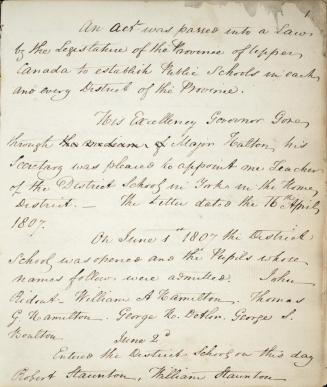 1
An Act was passed into a Law
by the Legislature of the Province of Upper
Canada to establish Public Schools in each
and every District of the Province.
His Excellency Governor Gore,
through the medium of Major Halton, his
Secretary was pleased to appoint me Teacher
of the District School, in York in the Home
District. — The Letter dated the 16th April
1807.
On June 1st 1807 the District
School was opened and the Pupils whose
names follow were admitted. John
Ridout - William A Hamilton. Thomas
G. Hamilton. George H. Detlor. George S.
Boulton. June 2d
Entered the District School on this day
Robert Staunton, William Staunton